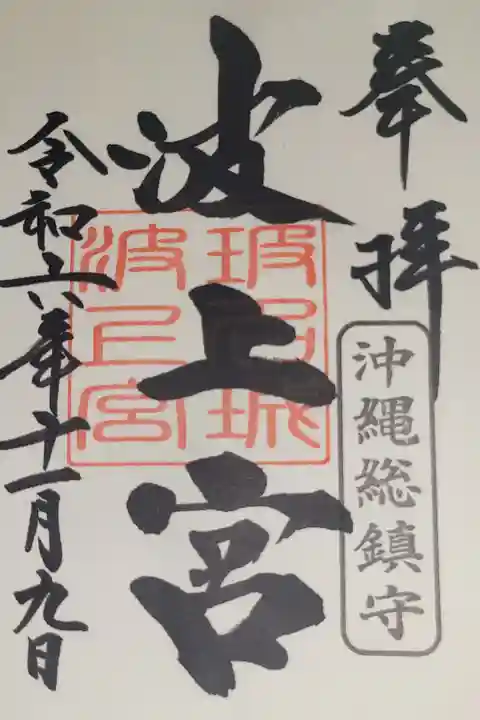 奉拝
沖縄総鎮守
波上宮
波上宮
令和六年十一月九日